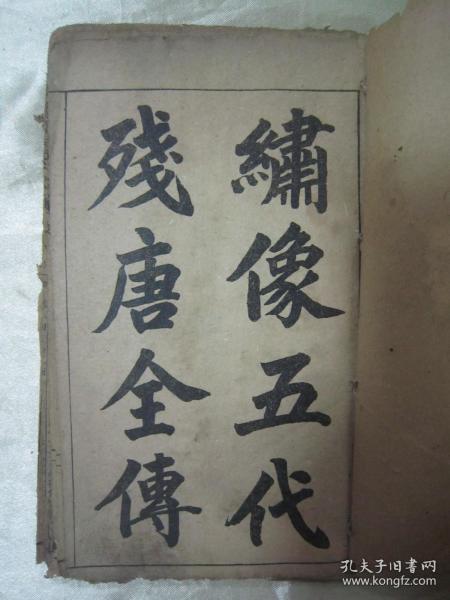 繡像五代
殘唐全傳
孔夫子旧书网
www.kongfz.com